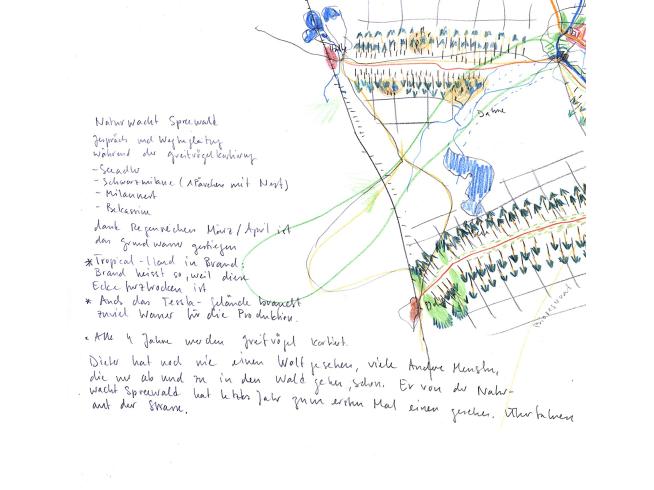 Naturwacht Spreewald
Gespräch und Wegbegleitung
während der Greifvögelkartierung
- Seeadler
- Schwarzmilane (1 Pärchen mit Nest)
- Milannest
- Bekassine
dank Regenreichen März/April ist
das grundwasser gestiegen
* Tropical-Iland in Brand:
Brand heisst so, weil diese
Ecke furztrocken ist
* Auch das Tessla-Gelände braucht
zuviel Wasser für die Produktion.
• Alle 4 Jahre werden Greifvögel kartiert.
Dieter hat noch nie einen Wolf gesehen, viele Andere Menschen,
die nur ab und zu in den Wald gehen, schon. Er von der Natur-
wacht Spreewald hat letztes Jahr zum ersten Mal einen gesehen. Überfahren
auf der Strasse.
Dahme